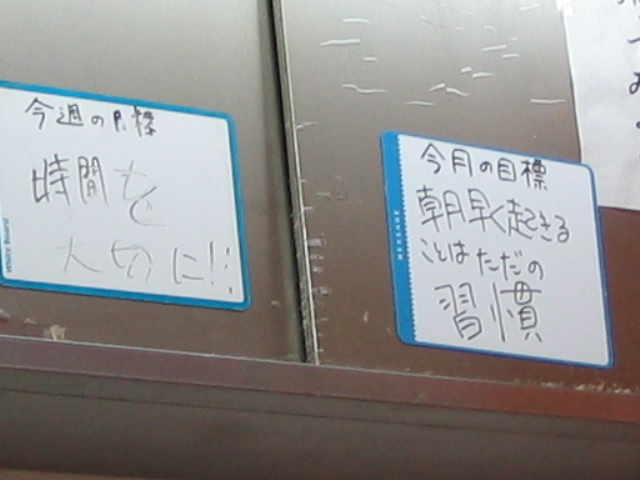 今週の目標
時間を
大切に!!
White Board
今月の目標
朝早く起きる
ことはただの
習慣
MESSAGE